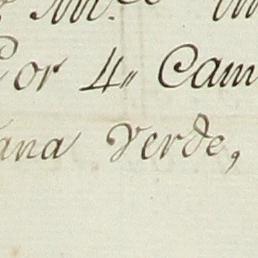 or 4,, Cam
ana Verde,